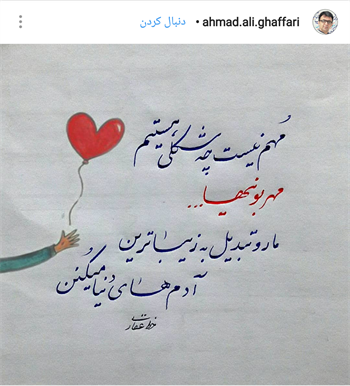 ahmad.ali.ghaffari • دنبال کردن
مهم نیست چه شکلی هستیم
مهربونیها...
ما رو تبدیل به زیباترین
آدم های دنیا میکنن
خط غفاری